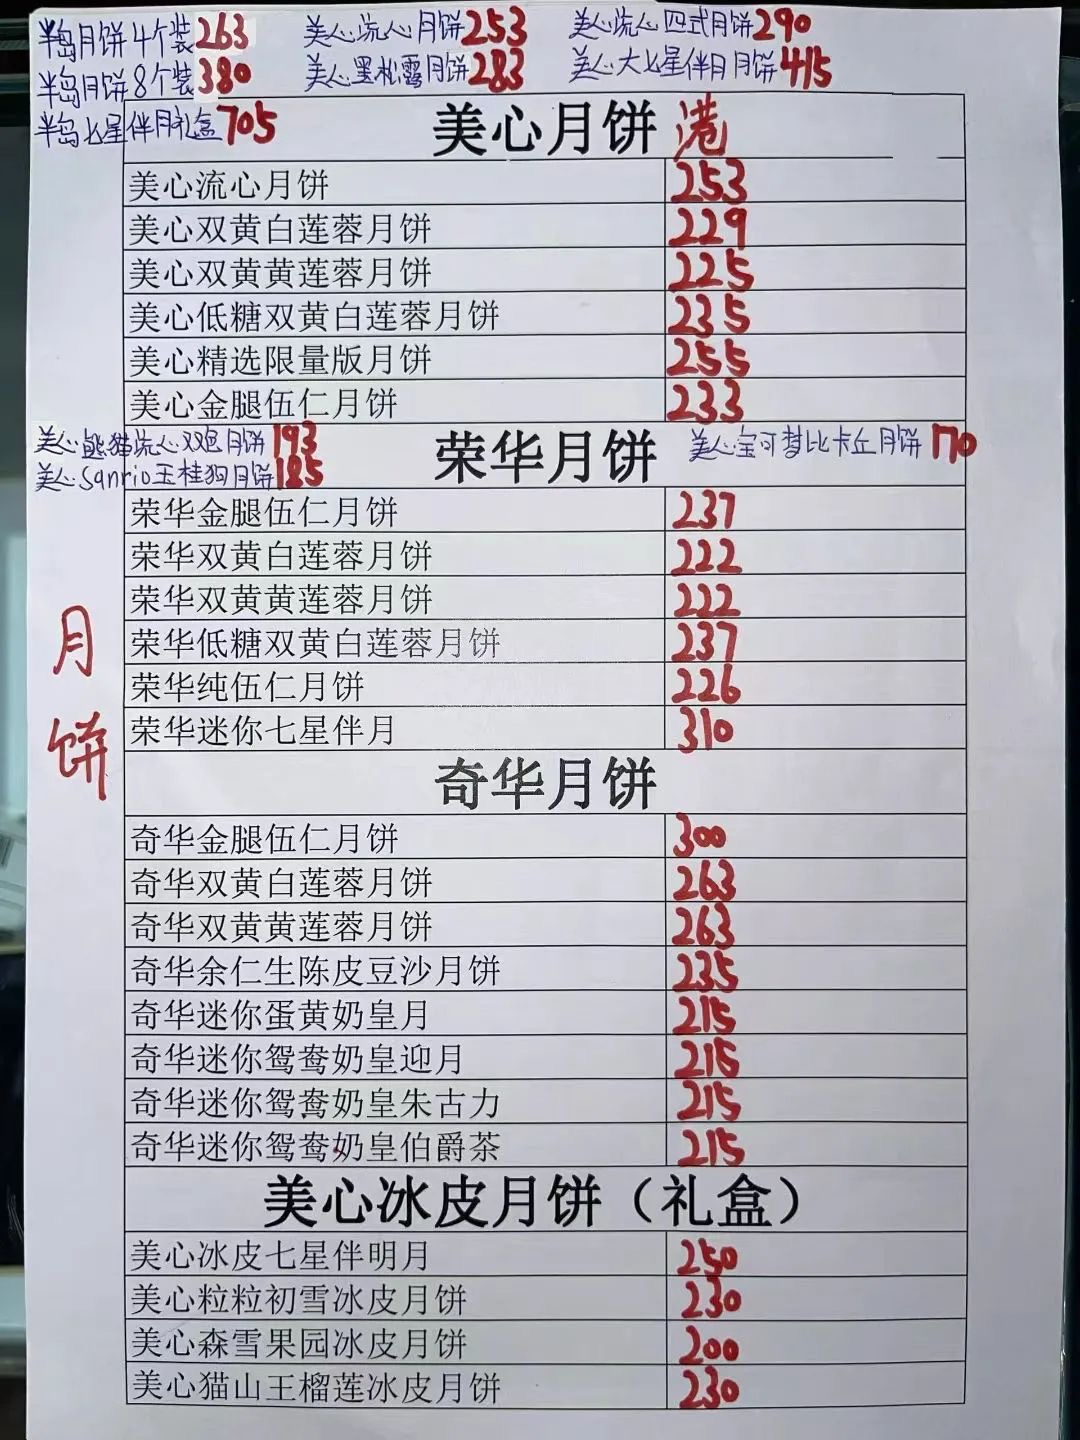 半岛月饼4个装263 美心流心月饼253 美心流心四式月饼290
半岛月饼8个装380 美心黑松露月饼283 美心大七星伴月月饼415
半岛七星伴月礼盒705
美心月饼 港
美心流心月饼 253
美心双黄白莲蓉月饼 229
美心双黄黄莲蓉月饼 225
美心低糖双黄白莲蓉月饼 235
美心精选限量版月饼 255
美心金腿伍仁月饼 233
美心熊猫流心双色月饼193 美心宝可梦比卡丘月饼170
美心Sanrio玉桂狗月饼185
荣华月饼
荣华金腿伍仁月饼 237
荣华双黄白莲蓉月饼 222
荣华双黄黄莲蓉月饼 222
荣华低糖双黄白莲蓉月饼 237
荣华纯伍仁月饼 226
荣华迷你七星伴月 310
月饼
奇华月饼
奇华金腿伍仁月饼 300
奇华双黄白莲蓉月饼 263
奇华双黄黄莲蓉月饼 263
奇华余仁生陈皮豆沙月饼 235
奇华迷你蛋黄奶皇月 215
奇华迷你鸳鸯奶皇迎月 215
奇华迷你鸳鸯奶皇朱古力 215
奇华迷你鸳鸯奶皇伯爵茶 215
美心冰皮月饼（礼盒）
美心冰皮七星伴明月 250
美心粒粒初雪冰皮月饼 230
美心森雪果园冰皮月饼 200
美心猫山王榴莲冰皮月饼 230